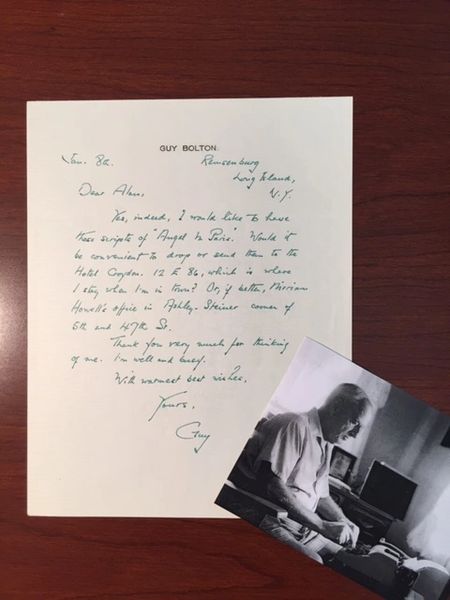 GUY BOLTON
Jan. 8th. Remsenburg
Long Island,
N.Y.
Dear Alan,
Yes, indeed, I would like to have
these scripts of "Angel In Paris". Would it
be convenient to drop or send them to the
Hotel Croydon. 12 E 86, which is where
I stay when I'm in town? Or, if better, Mirriam
Howell's office in Ashley-Steiner corner of
5th and 47th St.
Thank you very much for thinking
of me. I'm well and busy.
With warmest best wishes,
Yours,
Guy